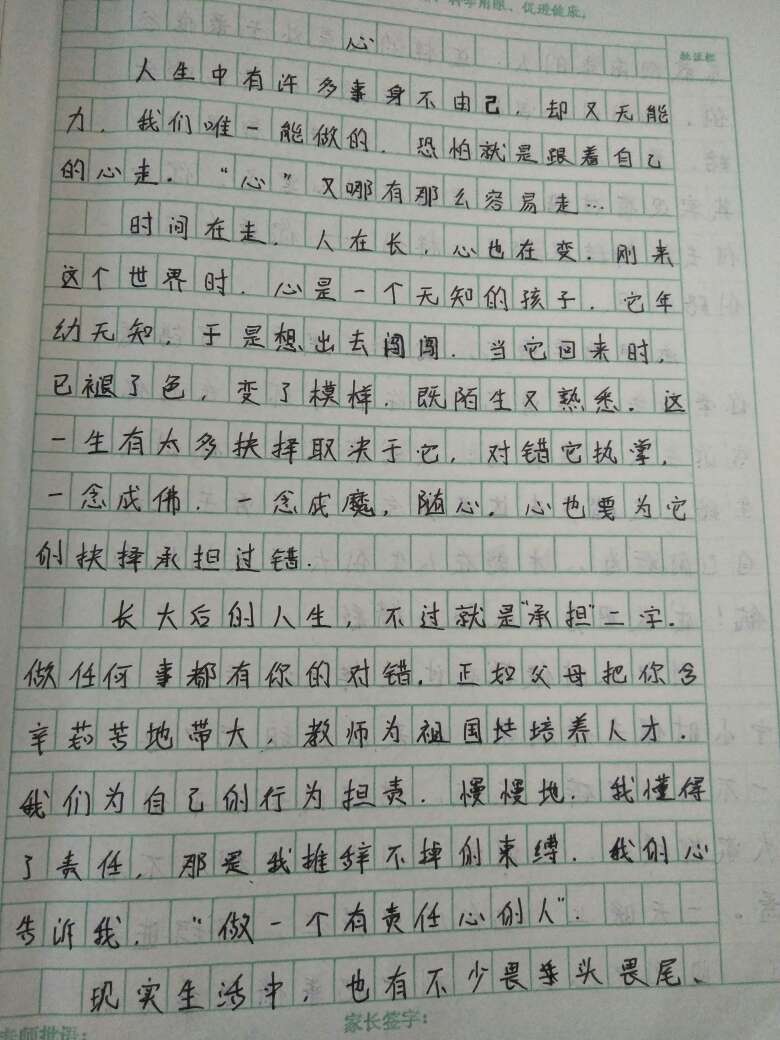 科学用眼、促进健康。
心
人生中有许多事身不由己，却又无能
力，我们唯一能做的，恐怕就是跟着自己
的心走。“心”又哪有那么容易走…
时间在走，人在长，心也在变。刚来
这个世界时，心是一个无知的孩子，它年
幼无知，于是想出去闯闯，当它回来时，
已褪了色，变了模样，既陌生又熟悉。这
一生有太多抉择取决于它，对错它执掌，
一念成佛，一念成魔，随心。心也要为它
的抉择承担过错。
长大后的人生，不过就是“承担”二字。
做任何事都有你的对错。正如父母把你含
辛茹苦地带大，教师为祖国培培养人才。
我们为自己的行为担责。慢慢地，我懂得
了责任，那是我推辞不掉的束缚。我的心
告诉我，“做一个有责任心的人”。
现实生活中，也有不少畏手头畏尾、
老师批语：
家长签字：